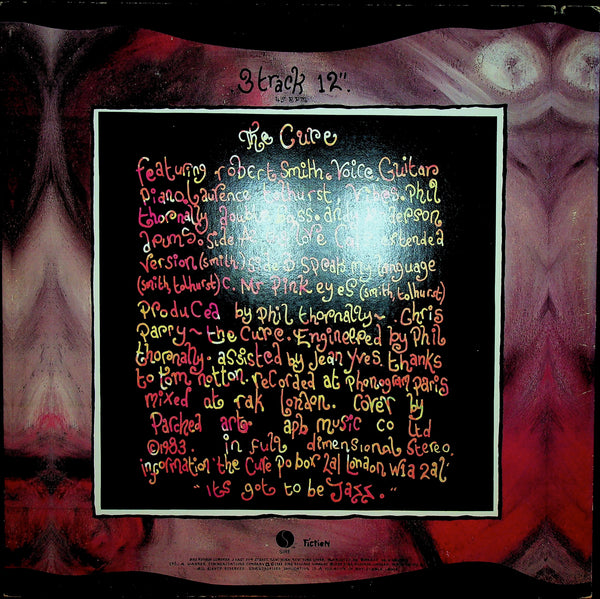 3 track 12".
45 R.P.M.
The Cure
featuring robert Smith. Voice Guitar
piano. Laurence tolhurst vibes. Phil
thornally double bass. andy anderson
drums. side A. love Cats extended
version (smith) side B. speak my language
(smith tolhurst) C. Mr Pink eyes (smith tolhurst)
Produced by phil thornally ~ Chris
Parry ~ the Cure. Engineered by Phil
thornally. assisted by Jean Yves. thanks
to tom notton. recorded at phonogram paris
mixed at rak london. cover by
Parched art. apb music co ltd
©1983. in full dimensional stereo.
information 'the Cure po box 2al london, w1a 2al'
"its got to be Jazz."
S SIRE Fiction
ALL RIGHTS RESERVED.